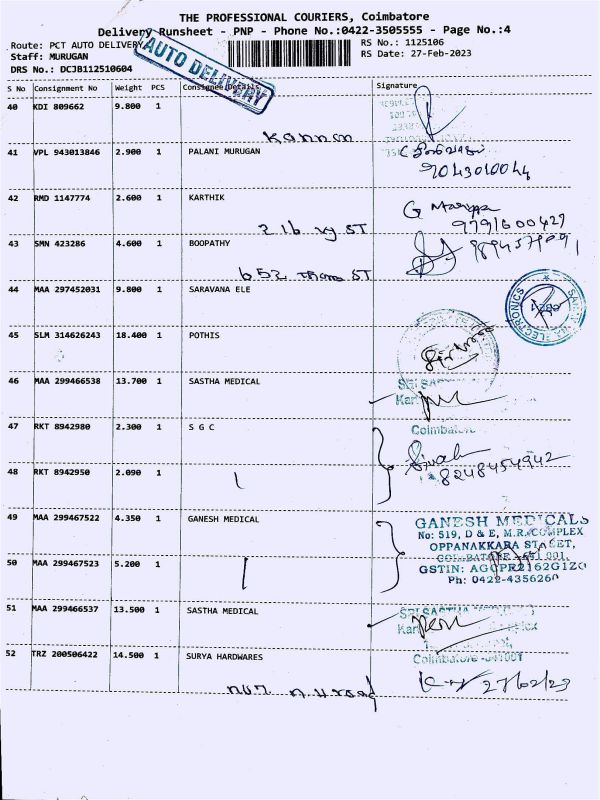 THE PROFESSIONAL COURIERS, Coimbatore
Delivery Runsheet - PNP - Phone No.:0422-3505555 - Page No.:4
Route: PCT AUTO DELIVERY
RS No.: 1125106
Staff: MURUGAN
RS Date: 27-Feb-2023
DRS No.: DCJB112510604
AUTO DELIVERY
S No Consignment No Weight PCS Consignee Details Signature
40 KDI 809662 9.800 1
Kannan
41 VPL 943013846 2.900 1 PALANI MURUGAN
9043010044
42 RMD 1147774 2.600 1 KARTHIK
2 lb vy ST
9791600429
43 SMN 423286 4.600 1 BOOPATHY
652 Thom ST
44 MAA 297452031 9.800 1 SARAVANA ELE
ELECTRONICS
45 SLM 314626243 18.400 1 POTHIS
46 MAA 299466538 13.700 1 SASTHA MEDICAL
Coimbatore
47 RKT 8942980 2.300 1 S G C
8248454942
48 RKT 8942950 2.090 1
49 MAA 299467522 4.350 1 GANESH MEDICAL
GANESH MEDICALS
No: 519, D & E, M.R. COMPLEX
OPPANAKKARA STREET,
COIMBATORE - 641 001.
GSTIN: AGQPR2162G1ZO
Ph: 0422-4356260
50 MAA 299467523 5.200 1
51 MAA 299466537 13.500 1 SASTHA MEDICAL
Coimbatore -641001
52 TRZ 200506422 14.500 1 SURYA HARDWARES
27/02/23